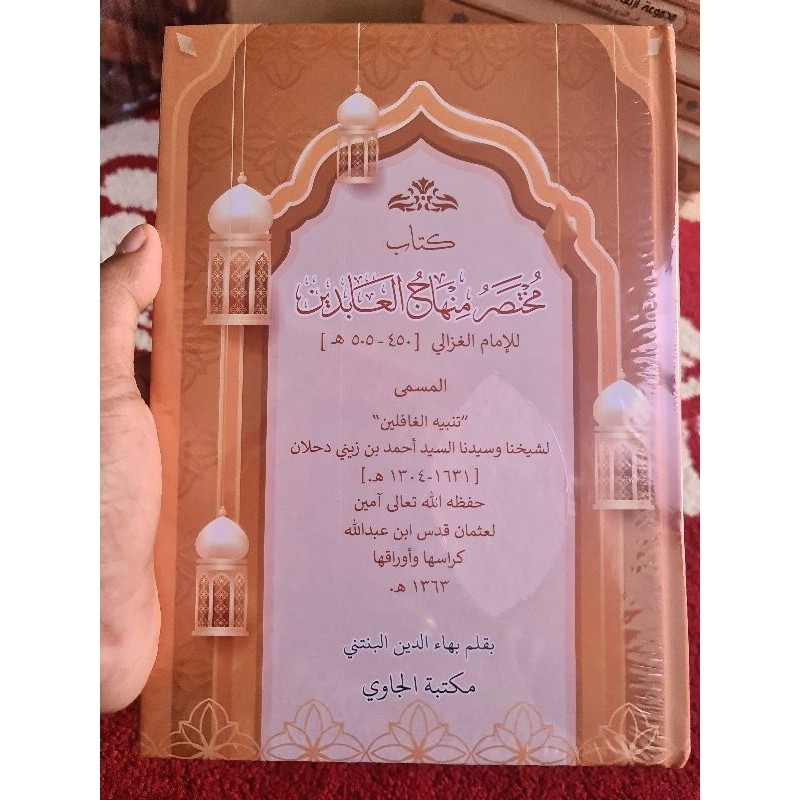 كتاب
مُخْتَصَرُ مِنْهَاجُ العَابِدِين
للإمام الغزالي [٤٥٠ - ٥٠٥ هـ]
المسمى
"تنبيه الغافلين"
لشيخنا وسيدنا السيد أحمد بن زيني دحلان
[١٦٣١-١٣٠٤ هـ.]
حفظه الله تعالى آمين
لعثمان قدس ابن عبدالله
كراسها وأوراقها
١٣٦٣ هـ.
بقلم بهاء الدين البنتني
مكتبة الجاوي
مجموعة